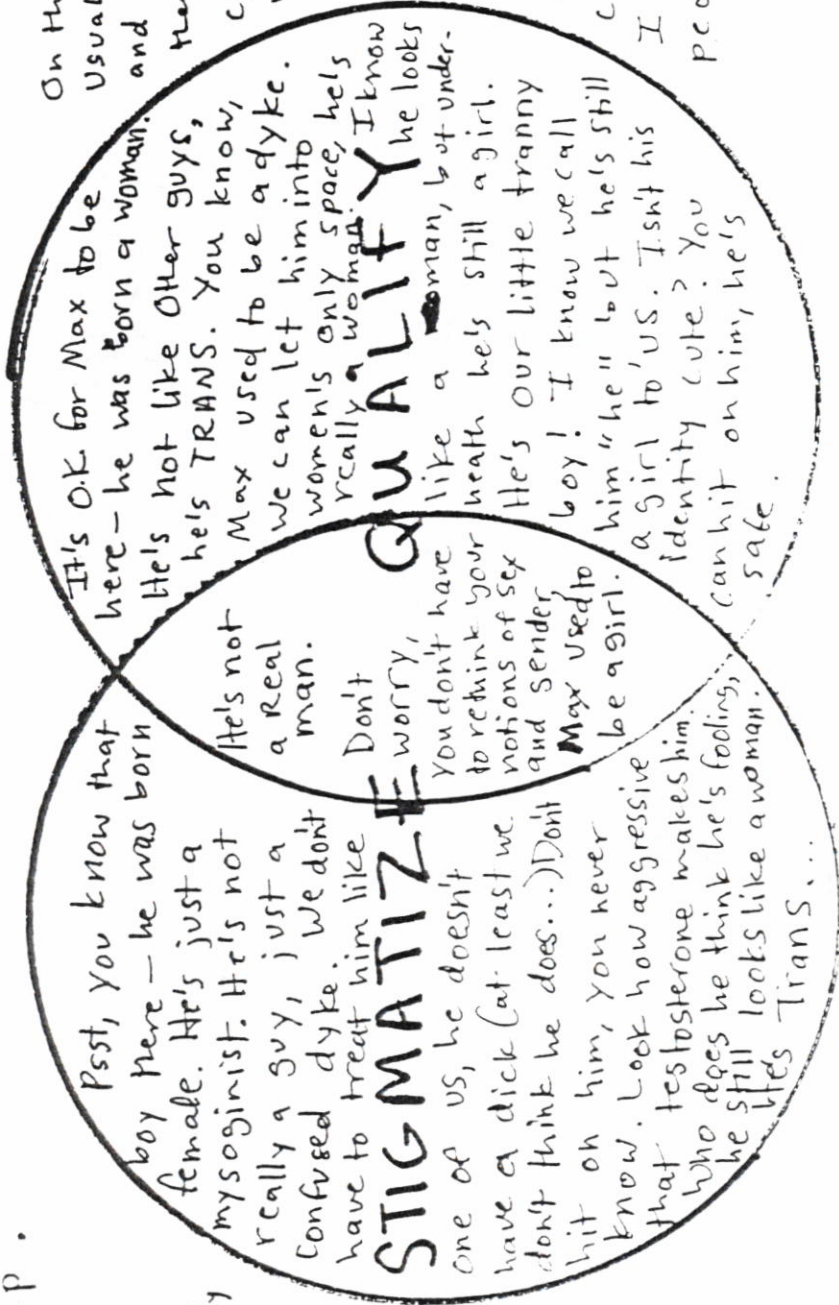 p.
y
Psst, you know that
boy there – he was born
female. He's just a
mysoginist. He's not
really a guy, just a
confused dyke. We don't
have to treat him like
STIGMATIZE
one of us, he doesn't
have a dick (at least we
don't think he does...) Don't
hit on him, you never
know. Look how aggressive
that testosterone makes him.
Who does he think he's fooling,
he still looks like a woman.
He's Trans...
He's not
a Real
man.
Don't
worry,
you don't have
to rethink your
notions of sex
and gender,
Max used to
be a girl.
It's O.K. for Max to be
here – he was born a woman.
He's not like Other guys,
he's TRANS. You know,
Max used to be a dyke.
We can let him into
women's only space, he's
really a woman. I know
QUALIFY
he looks
like a woman, but under-
neath he's still a girl.
He's Our little tranny
boy! I know we call
him "he" but he's still
a girl to US. Isn't his
identity cute? You
can hit on him, he's
safe.
On th
Usual
and
the
c
c
I
peo